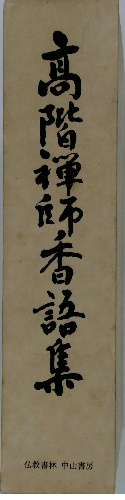 高階禅師香語集
仏教書林 中山書房